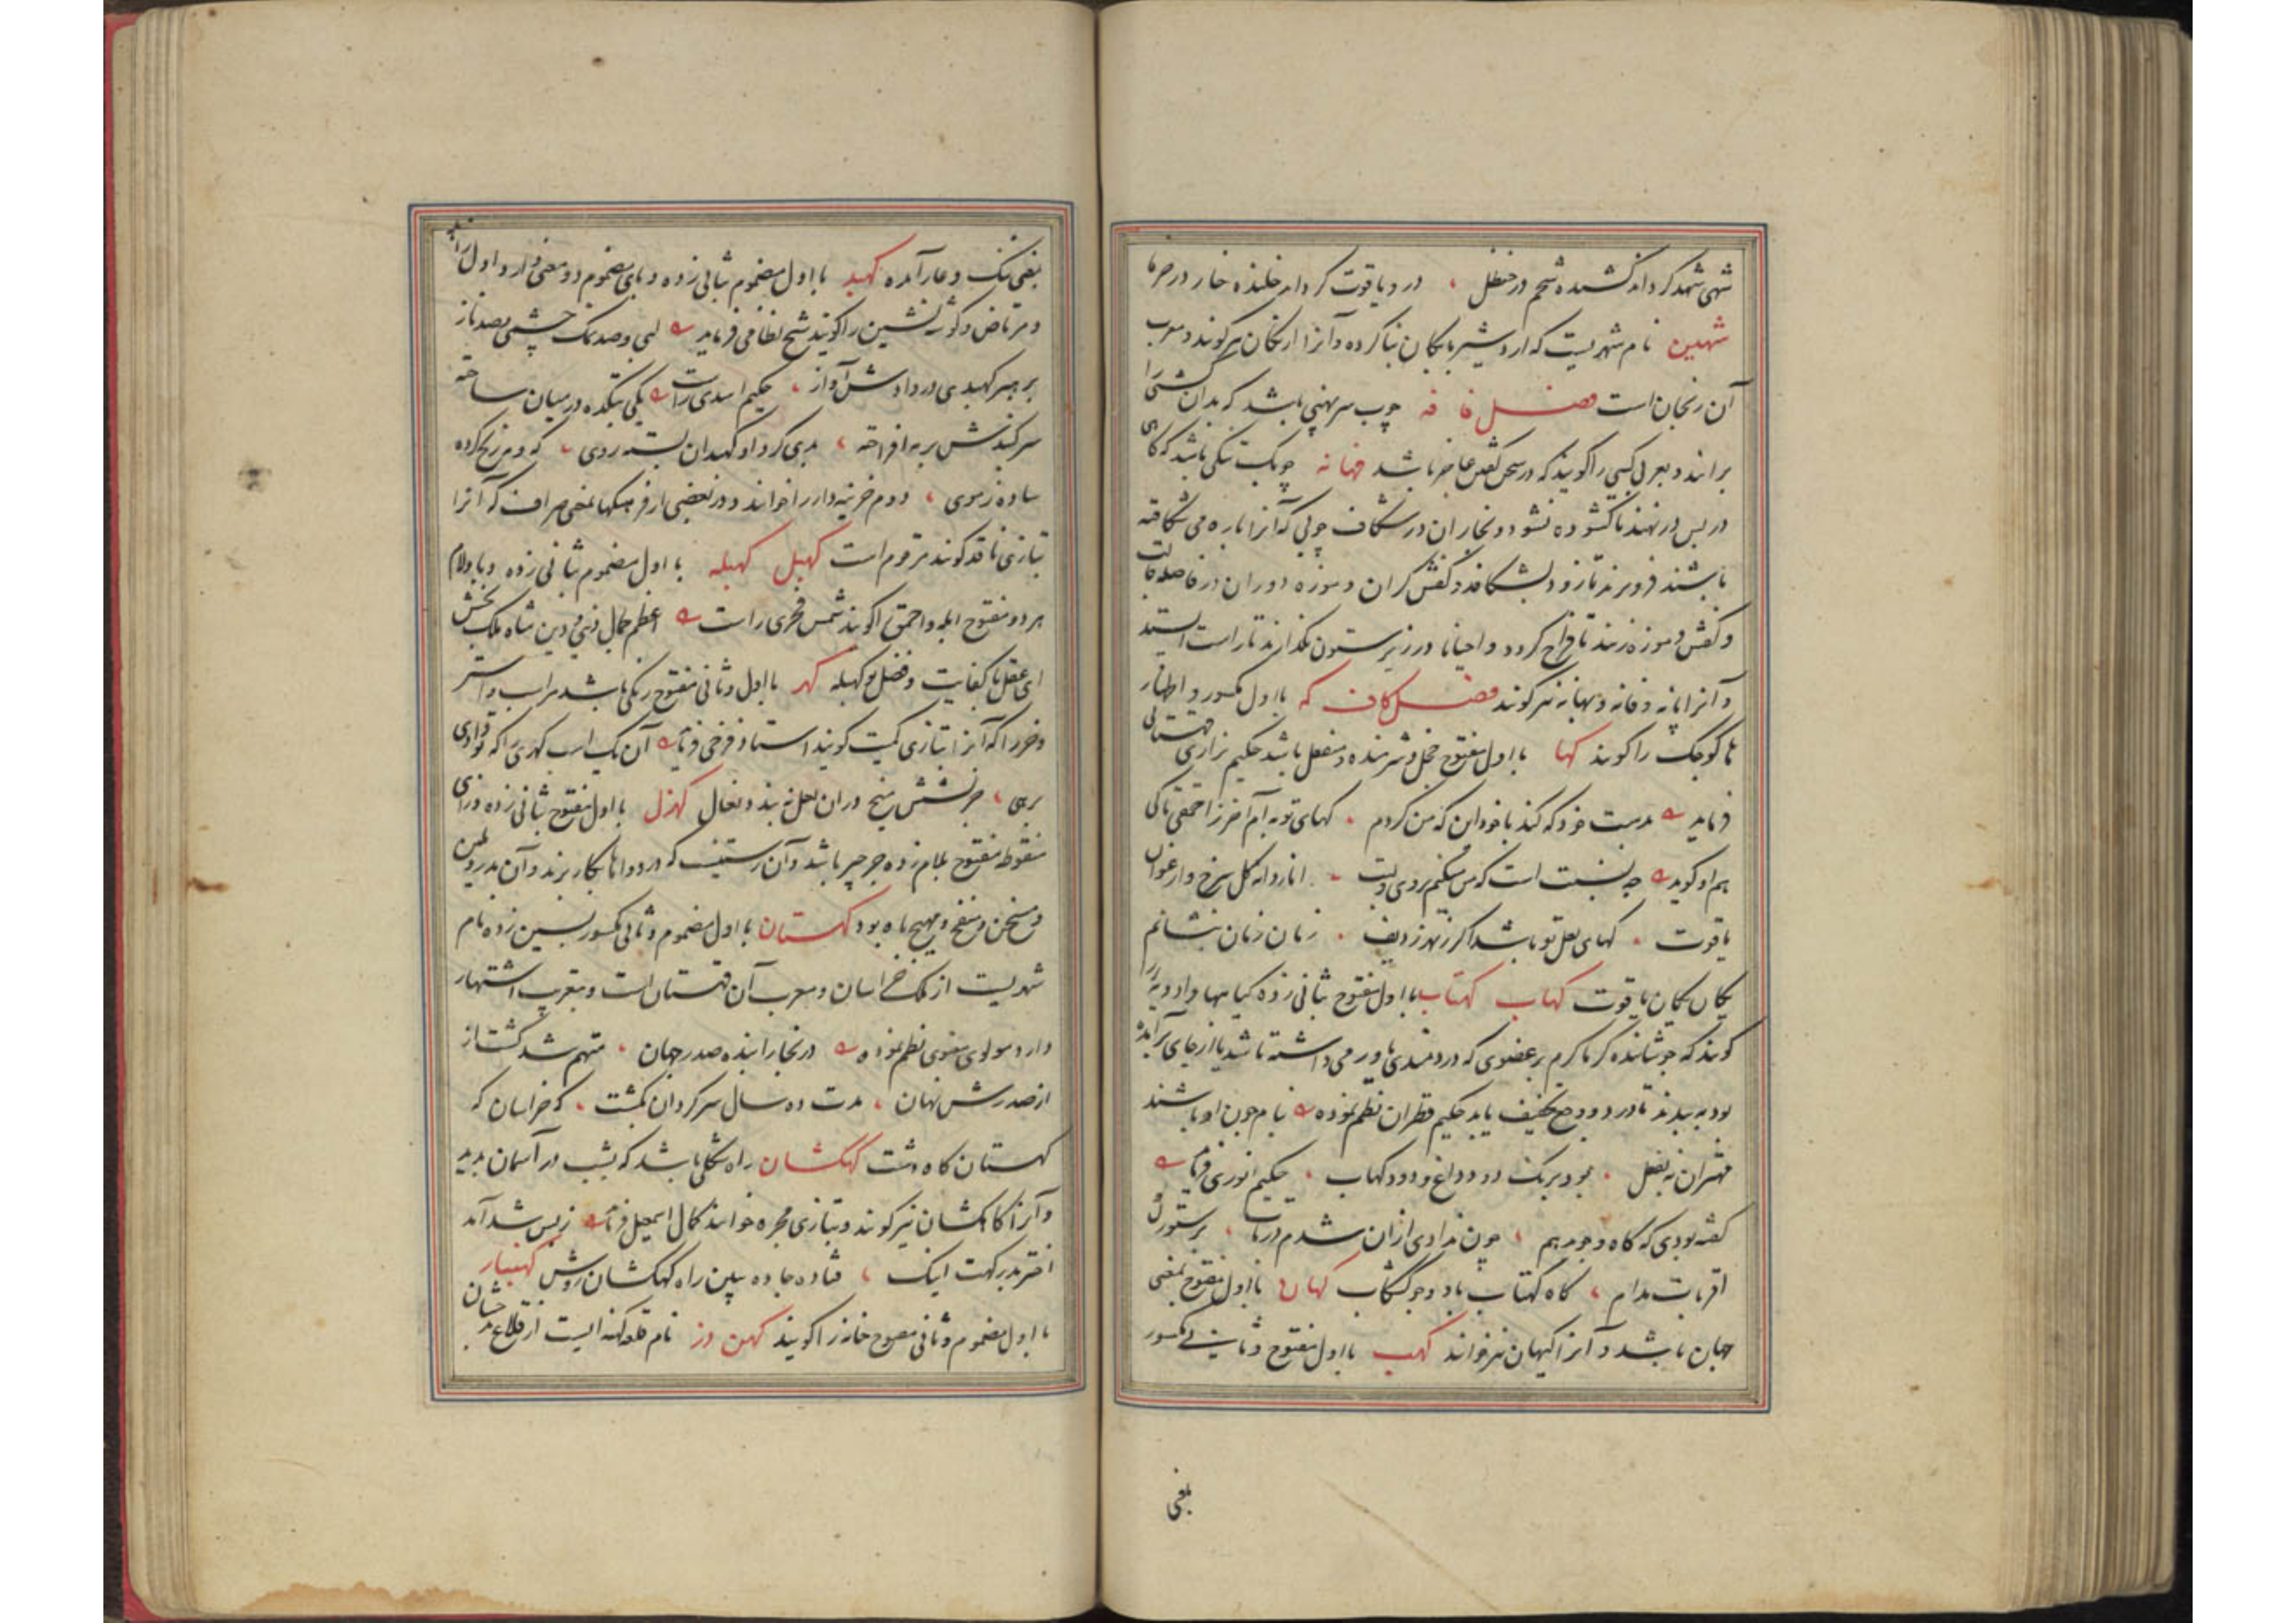 شهی شهد کرداند کشنده شحم در حنظل ، در و یاقوت کردار خلنده خار در خرما
شهین نام شهریست که اردشیر بابکان بنا کرده و آنرا ارنکان نیز کویند و معرب
آن زنجان است فصل فا فه چوب سر پهنی باشد که بدان کشتی را
برانند و بعربی کسی را کویند که در سخن کفتن عاجز باشد فهانه چوبک تنکی باشد که کاهی
در پس در نهند تا کشوده نشود و نجاران در شکاف چوبی که آنرا باره می شکافته
باشند فرو برند تا زود بشکافد و کفش کران و موزه دوران در فاصله قالب
و کفش و موزه زنند تا فراخ کردد و احیانا در زیر ستون کذارند تا راست ایستد
و آنرا پانه و فانه و بهانه نیز کویند فصل کاف که با اول مکسور و اظهار
ها کوچک را کویند کها با اول مفتوح خجل و شرمنده و منفعل باشد حکیم نزاری قهستانی
فرماید بدست خود که کند با خود این که من کردم ، کهای توبه ام آخر ز احمقی تا کی
هم او کوید چه نسبت است که من میکنم بروی و لبت ، انار دانه کل سرخ و ارغوان
یاقوت ، کهای لعل تو باشد اکر زند زدیف ، زمان زمان بنشانم
یکان یکان یاقوت کهاب کهتاب با اول مفتوح بثانی زده کیاهها و ادویه را
کویند که جوشانده کرما کرم بر عضوی که دردمندی یا ورمی داشته باشد یا از جای برآمده
بود به بندند تا درد و وجع تخفیف یابد حکیم قطران نظم نموده نیام چون او باشند
مهتران نه بفضل ، بود برنک دود داغ و دود کهاب ، حکیم انوری فرماید
کفته بودی که کاه و جو بدهم ، چون ندادی ازان شدم در تاب ، بر ستوران
اقربات مدام ، کاه کهتاب باد و جو کشکاب کهان با اول مفتوح بمعنی
جهان باشد و آنرا کیهان نیز خوانند کهب با اول مفتوح و ثانی مکسور
بمعنی
بمعنی ننک و عار آمده کهبد با اول مضموم بثانی زده و بای مضموم دو معنی دارد اول زاهد
و مرتاض و کوشه نشین را کویند شیخ نظامی فرماید لبی و صد نمک چشمی و صد ناز
برهبر کهبدی در دادش آواز ، حکیم اسدی راست یکی بتکده در میان ساخته
سر کنبدش بر مه افراخته ، بدی کرد او کهبدان بسته ردی ، که و مه زنخ کرده
ساده ز موی ، دوم خزینه دار را خوانند و در بعضی از فرهنکها بمعنی صراف که آنرا
بتازی ناقد کویند مرقوم است کهبل کهبله با اول مضموم بثانی زده و با و لام
هر دو مفتوح ابله و احمق را کویند شمس فخری راست اعظم جمال دنیی و دین شاه ملک بخش
ای عقل با کفایت و فضل تو کهبله کهر با اول و ثانی مفتوح رنکی باشد مر اسب و استر
و خر را که آنرا بتازی کمیت کویند استاد فرخی فرماید آن یک اسب کهری را که تو دادی
برهی ، جز بشش میخ دران نعل نه بندد نعال کهزل با اول مفتوح بثانی زده و زای
منقوطه مفتوح بلام زده جرجیر باشد و آن رستنیست که در دواها بکار برند و آن مدر و ملین
و مسخن و منفخ و مهیج باه بود کهستان با اول مضموم و ثانی مکسور بسین زده نام
شهریست از ملک خراسان و معرب آن قهستان است و بتعریب اشتهار
دارد مولوی معنوی نظم نموده در بخارا بنده صدر جهان ، متهم شد کشت از
از صدرش نهان ، مدت ده سال سرکردان بکشت ، که خراسان که
کهستان کاه دشت کهکشان راه شکلی باشد که بشب در آسمان پدید
و آنرا کاهکشان نیز کویند و بتازی مجره خوانند کمال اسمعیل فرماید ز بس شد آمد
اختر بدر کهت اینک ، فتاده جاده ببین راه کهکشان روشن کهنبار
با اول مضموم و ثانی مفتوح خانه را کویند کهن دز نام قلعه کهنه ایست از قلاع بدخشان